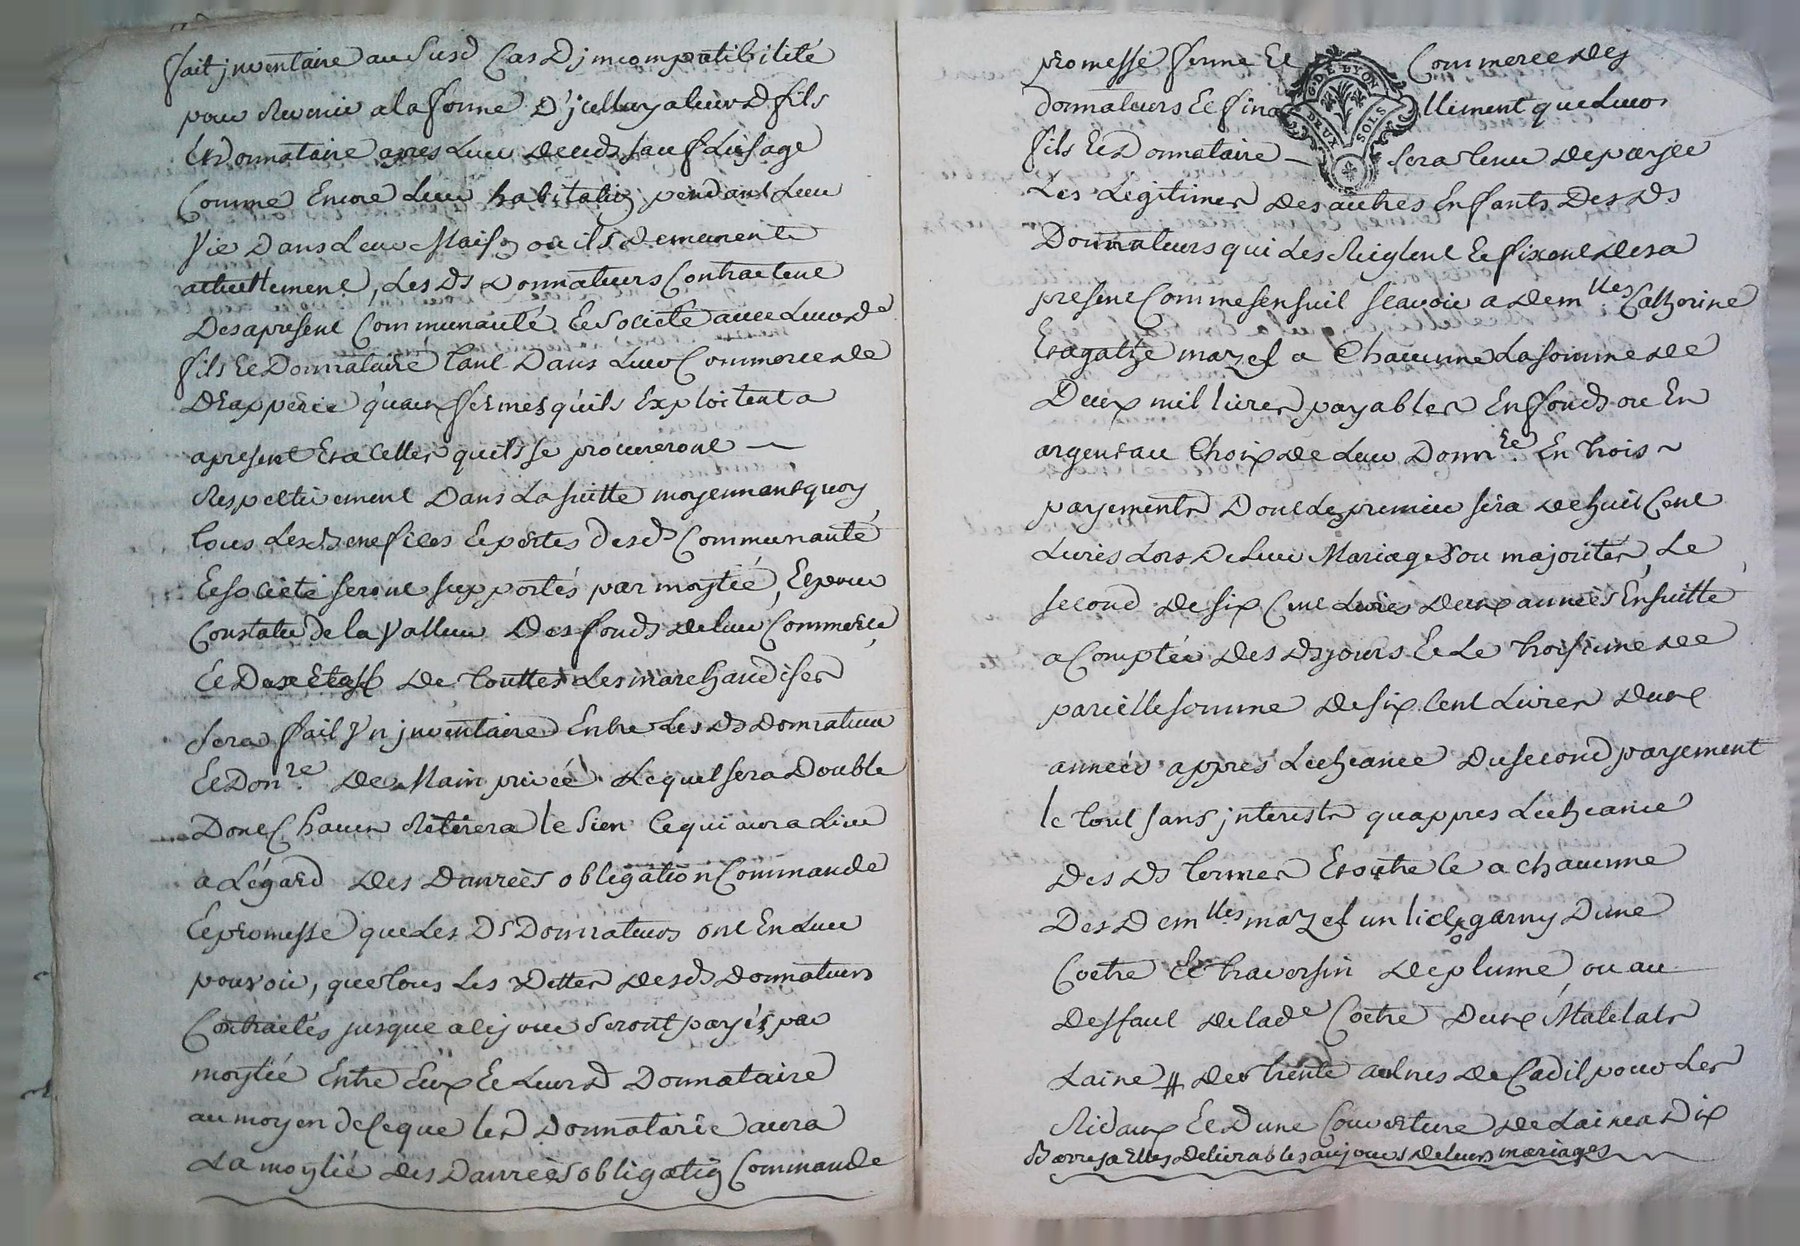 fait jnventaire au susd Cas Djmcompatibilité
pour Revenir a la forme D'jcelluy a leur d fils
Et Donnataire apres Leur deceds sauf Lusage
Comme Encore Leur habitation pendant Leur
Vie Dans Leur Maison ou ils demeurent
actuellement, Les Ds Donnateurs Contractent
Des apresent Communauté Et Societé avec Leurd
fils Et Donnataire tant Dans Leur Commerce de
Drapperie quaux fermes quils Exploitent a
apresent Et a Celles quils se procureront
Respectivement Dans La suitte moyennant quoy
tous Les Benefices Et pertes desd Communauté
Et societé seront supportés par moytié, Et pour
Constater de la Valleur Des fonds de leur Commerce
Et De de touttes Les marchandises
sera fait Vn jnventaire Entre Les Ds Donnateur
Et Donre de Main privée Lequel sera Double
Dont Chacun Retirera le sien Ce qui aura Lieu
a Légard des Danrées obligation Commande
Et promesse que Les Ds Donnateurs ont En Leur
pouvoir, que tous Les Dettes desd Donnateurs
Contractés jusque a Ce jour seront payés par
moytié Entre Eux Et Leurd Donnataire
au moyen de Ce que led Donnatarie aura
La moytié des Danrées obligation Commande
promesse ferme Et Commerce des
Donnateurs Et fina llement que Leur
fils Et Donnataire sera tenu de payer
Les Legitimes des autres Enfants Des Ds
Donnateurs qui Les Reiglent Et fixent des a
present Comme sensuit scavoir a demlles Catherine
Et agathe mazel a Chacunne La somme de
Deux mil livres payables En fonds ou En
argent au Choix de Leur Donnre En trois
payements Dont Le premier sera de huit Cent
Livres Lors de leur Mariages ou majorités, Le
second de six Cent Livres deux années Ensuitte
a Compter des ds jours Et Le troisieme de
pareille somme de six Cent Livres dune
année appres Lecheance du second payement
le tout sans jnterests quappres Lecheance
des ds termes Et outre Ce a chacunne
Des Demlles mazel un lict garny Dune
Coetre Et traversin de plume, ou au
deffaut de lade Coetre Dun Matelats
Laine de trente aulnes de Cadil pour Les
Ridaux Et Dune Couverture de Laine a Dix
Barres a Elles delivrables aux jours de leurs mariages
G. DE LYON
DEUX SOLS